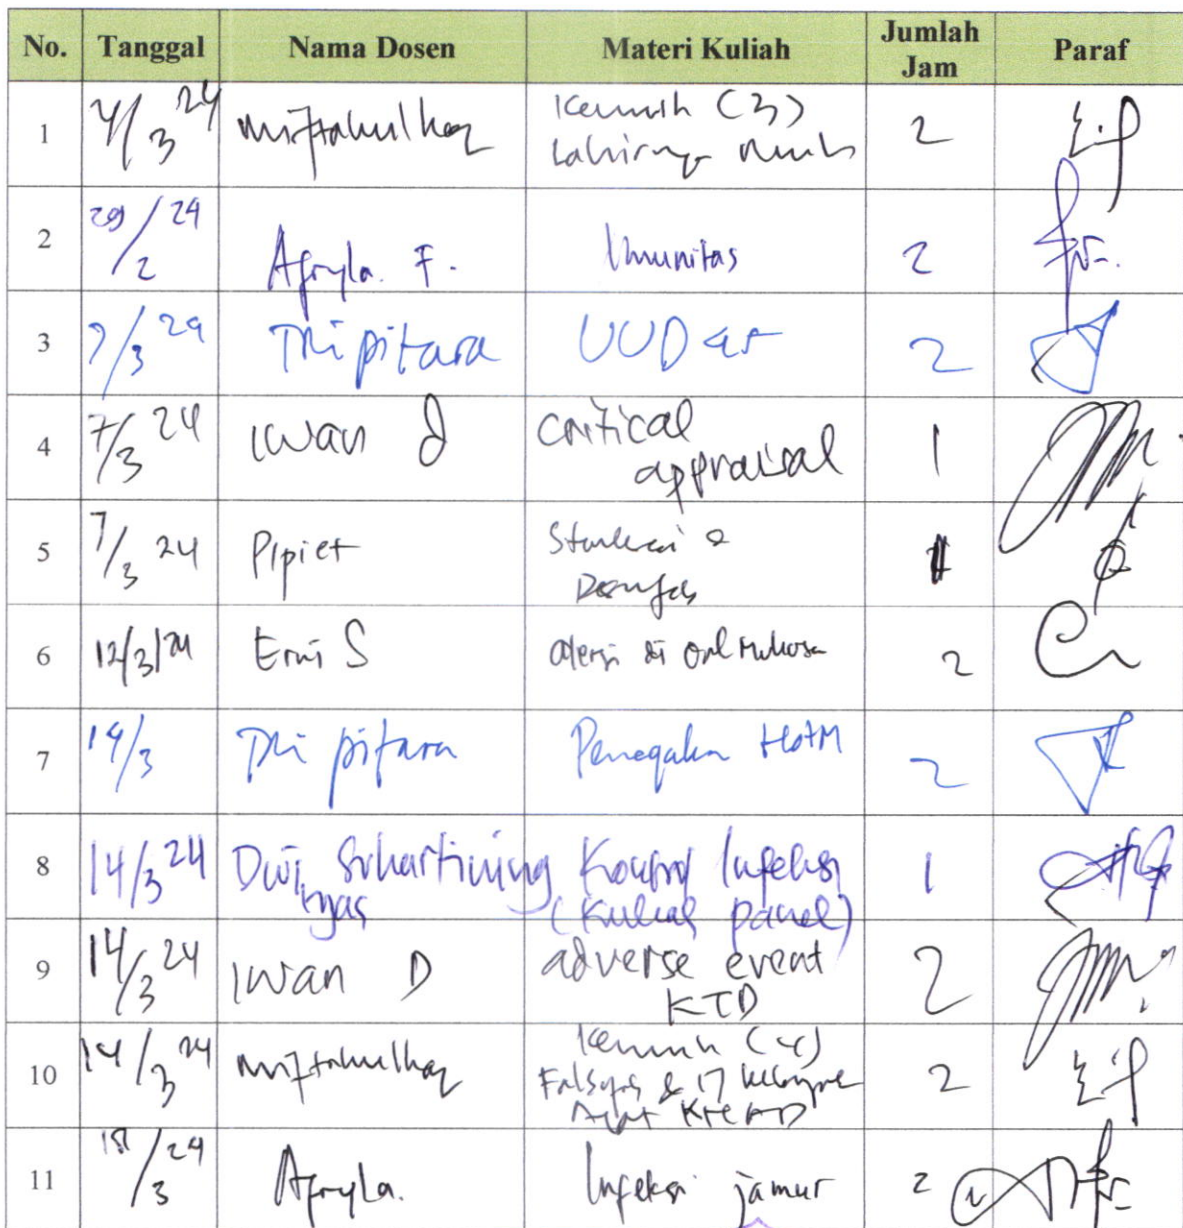 No. Tanggal Nama Dosen Materi Kuliah Jumlah Jam Paraf
1 4/3 24 Miftahulhaq Kemuh (3) 2
Lahirnya Muh
2 29/2 24 Afryla. F. Imunitas 2
3 7/3 24 Tri pitara UUD 45 2
4 7/3 24 Iwan D critical 1
appraisal
5 7/3 24 Pipiet
6 12/3/24 Erni S alergi di Oral Mukosa 2
7 14/3 Tri pitara Penegakan HAM 2
8 14/3 24 Dwi Suhartiningtyas Kontrol Infeksi 1
(Kuliah panel)
9 14/3 24 Iwan D adverse event 2
KTD
10 14/3 24 Miftahulhaq (4) 2
& 17
11 18/3 24 Afryla. Infeksi jamur 2